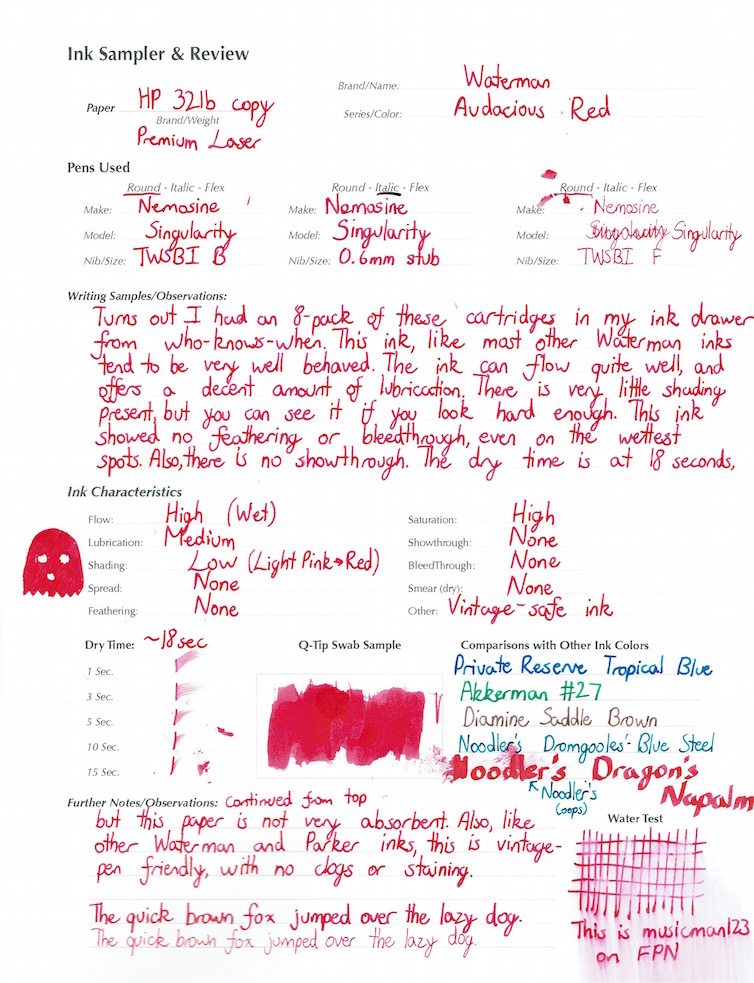 Ink Sampler & Review
Paper HP 32lb copy
Brand/Weight
Premium Laser
Brand/Name: Waterman
Series/Color: Audacious Red
Pens Used
Round - Italic - Flex
Make: Nemosine
Model: Singularity
Nib/Size: TWSBI B
Round - Italic - Flex
Make: Nemosine
Model: Singularity
Nib/Size: 0.6mm stub
Round - Italic - Flex
Make: Nemosine
Model: Singularity
Nib/Size: TWSBI F
Writing Samples/Observations:
Turns out I had an 8-pack of these cartridges in my ink drawer
from who-knows-when. This ink, like most other Waterman inks
tend to be very well behaved. The ink can flow quite well, and
offers a decent amount of lubrication. There is very little shading
present, but you can see it if you look hard enough. This ink
showed no feathering or bleedthrough, even on the wettest
spots. Also, there is no showthrough. The dry time is at 18 seconds,
Ink Characteristics
Flow: High (Wet)
Lubrication: Medium
Shading: Low (Light Pink→Red)
Spread: None
Feathering: None
Saturation: High
Showthrough: None
BleedThrough: None
Smear (dry): None
Other: Vintage-safe ink
Dry Time: ~18sec
1 Sec.
3 Sec.
5 Sec.
10 Sec.
15 Sec.
Q-Tip Swab Sample
Comparisons with Other Ink Colors
Private Reserve Tropical Blue
Akkerman #27
Diamine Saddle Brown
Noodler's Dromgooles' Blue Steel
Noodler's Dragon's
Napalm
Noodler's
(oops)
Further Notes/Observations: continued from top
but this paper is not very absorbent. Also, like
other Waterman and Parker inks, this is vintage-
pen friendly, with no clogs or staining.
The quick brown fox jumped over the lazy dog.
The quick brown fox jumped over the lazy dog.
Water Test
This is musicman123
on FPN